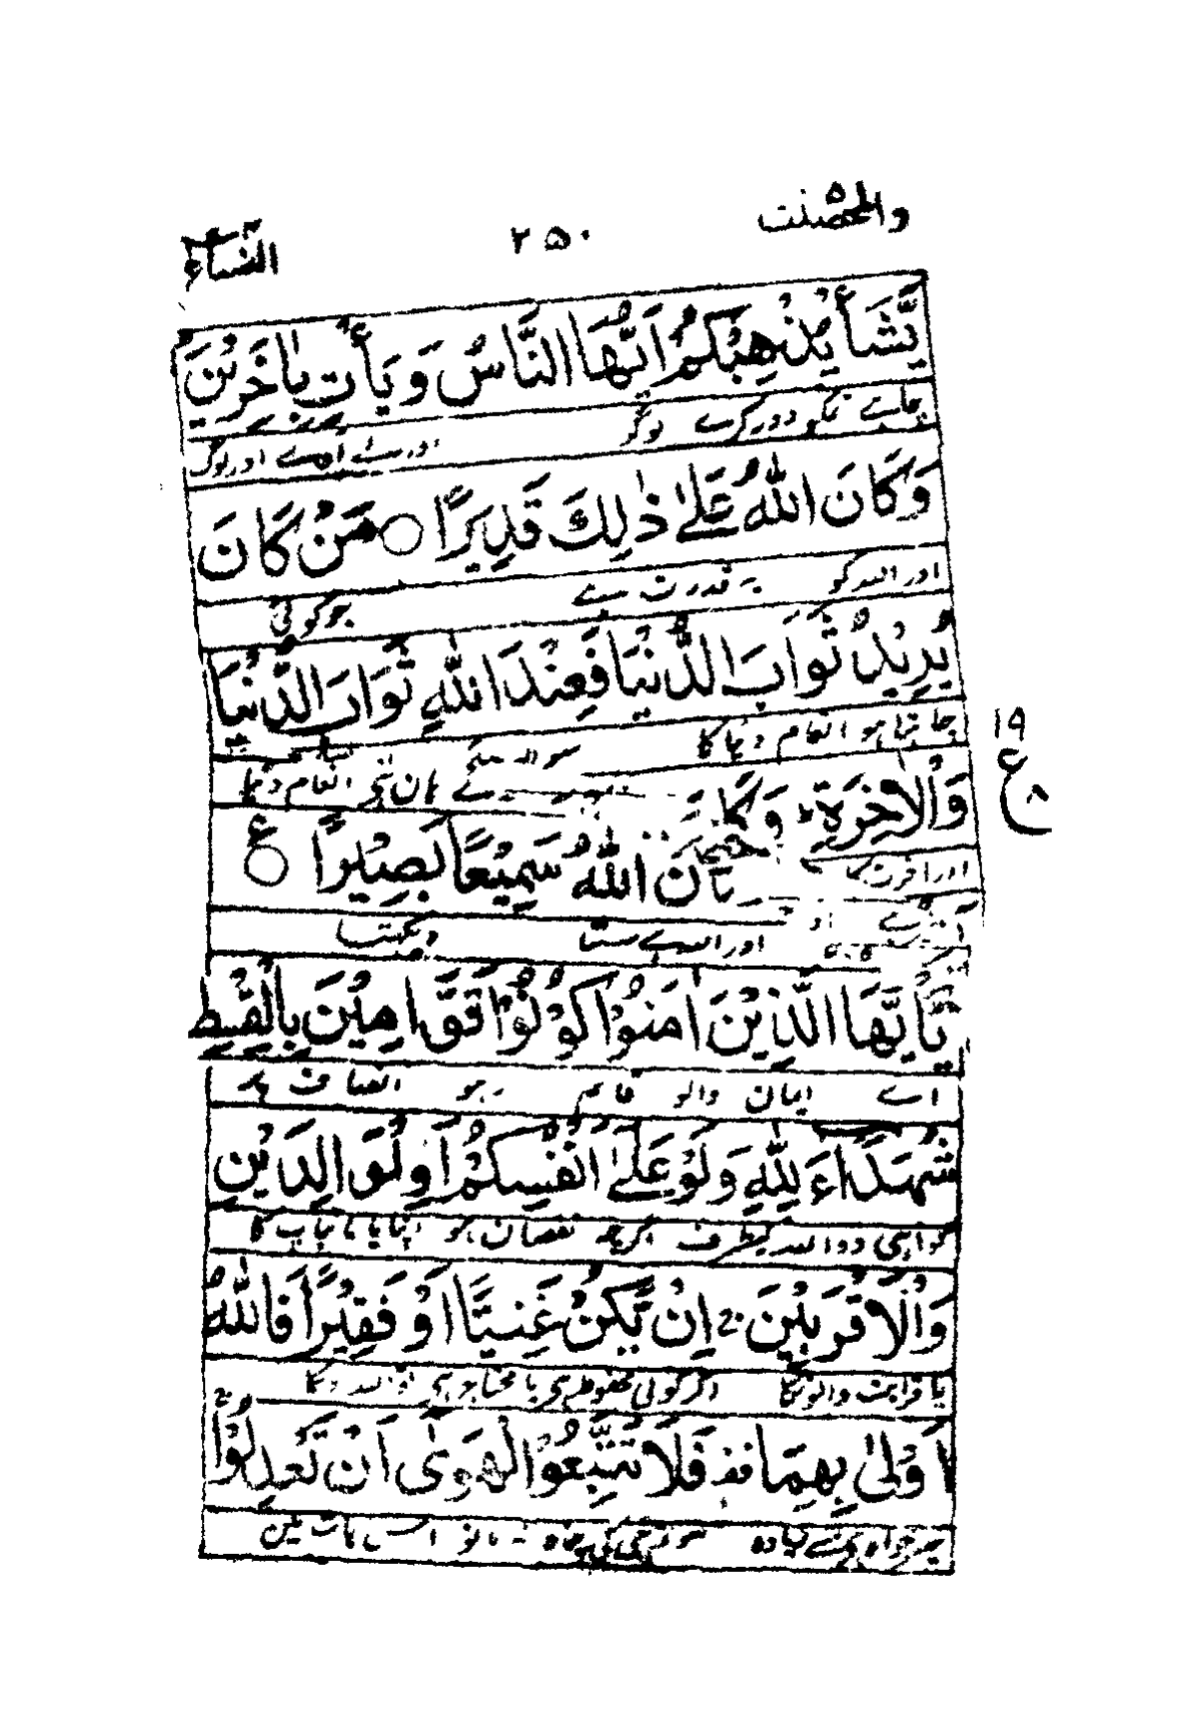 والمحصنت ۵ ۲۵۰ النساء ۴
يَّشَأْ يُذْهِبْكُمْ اَيُّهَا النَّاسُ وَيَأْتِ بِاٰخَرِيْنَ
چاہے تمکو دور کرے لوگو اور لے آوے اور لوگ
وَكَانَ اللّٰهُ عَلٰى ذٰلِكَ قَدِيْرًا ○ مَنْ كَانَ
اور اللہ کو یہ قدرت ہے جو کوئی
يُرِيْدُ ثَوَابَ الدُّنْيَا فَعِنْدَ اللّٰهِ ثَوَابُ الدُّنْيَا
چاہتا ہو انعام دنیا کا سو اللہ کے ہاں ہی انعام دنیا
وَالْاٰخِرَةِ ؕ وَكَانَ اللّٰهُ سَمِيْعًا بَصِيْرًا ○ ع
۱۹ ع ۸
اور آخرت کا اور اللہ ہے سنتا دیکھتا
يٰٓاَيُّهَا الَّذِيْنَ اٰمَنُوْا كُوْنُوْا قَوَّامِيْنَ بِالْقِسْطِ
اے ایمان والو قایم رہو انصاف پر
شُهَدَآءَ لِلّٰهِ وَلَوْ عَلٰٓى اَنْفُسِكُمْ اَوِ الْوَالِدَيْنِ
گواہی دو اللہ کیطرف اگرچہ نقصان ہو اپنا یا ما باپ کا
وَالْاَقْرَبِيْنَ ۚ اِنْ يَّكُنْ غَنِيًّا اَوْ فَقِيْرًا فَاللّٰهُ
یا قرابت والونکا اگر کوئی محظوظ ہی یا محتاج ہی تو اللہ
اَوْلٰى بِهِمَا قف فَلَا تَتَّبِعُوا الْهَوٰٓى اَنْ تَعْدِلُوْا ۚ
خیر خواہ زیادہ سو تم جی کی چاہ نہ مانو اس بات میں